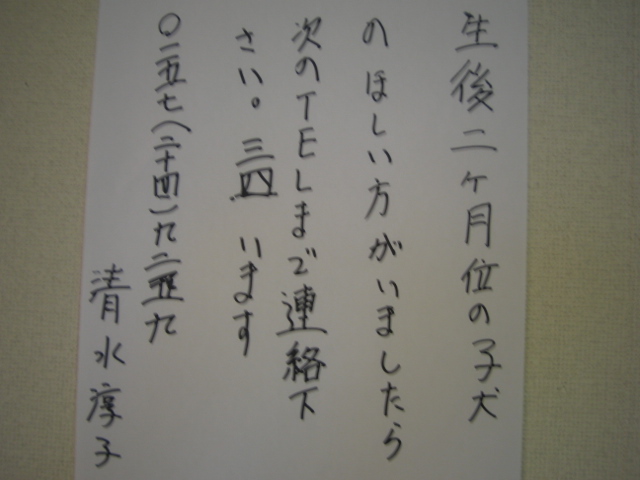 生後二ヶ月位の子犬
のほしい方がいましたら
次のTELまで連絡下
さい。三四います
〇二五七(二十四)九二五九
清水淳子